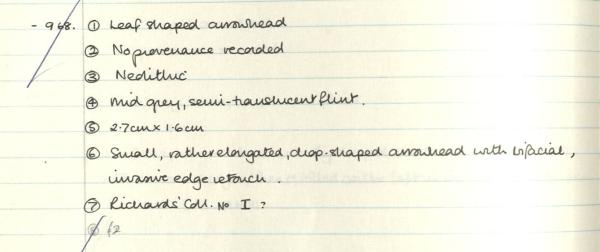 - 968. ① Leaf shaped arrowhead
② No provenance recorded
③ Neolithic
④ Mid grey, semi-translucent flint.
⑤ 2.7cm x 1.6cm
⑥ Small, rather elongated, drop-shaped arrowhead with bifacial,
invasive edge retouch.
⑦ Richards' Coll. No I ?
⑧ f2